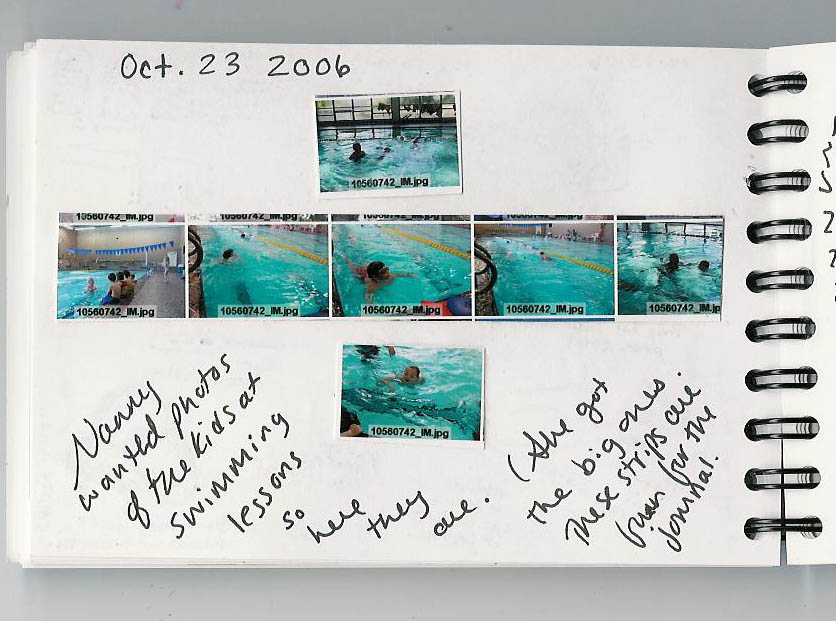 Oct. 23 2006
10560742_IM.jpg
10560742_IM.jpg
10560742_IM.jpg
10560742_IM.jpg
10560742_IM.jpg
10560742_IM.jpg
10560742_IM.jpg
10560742_IM.jpg
10560742_IM.jpg
10560742_M.j
10560742_IM.jpg
Nanny
wanted photos
of the kids at
swimming
lessons
so here they are.
(She got
the big ones.
These strips are
from for the
journal.